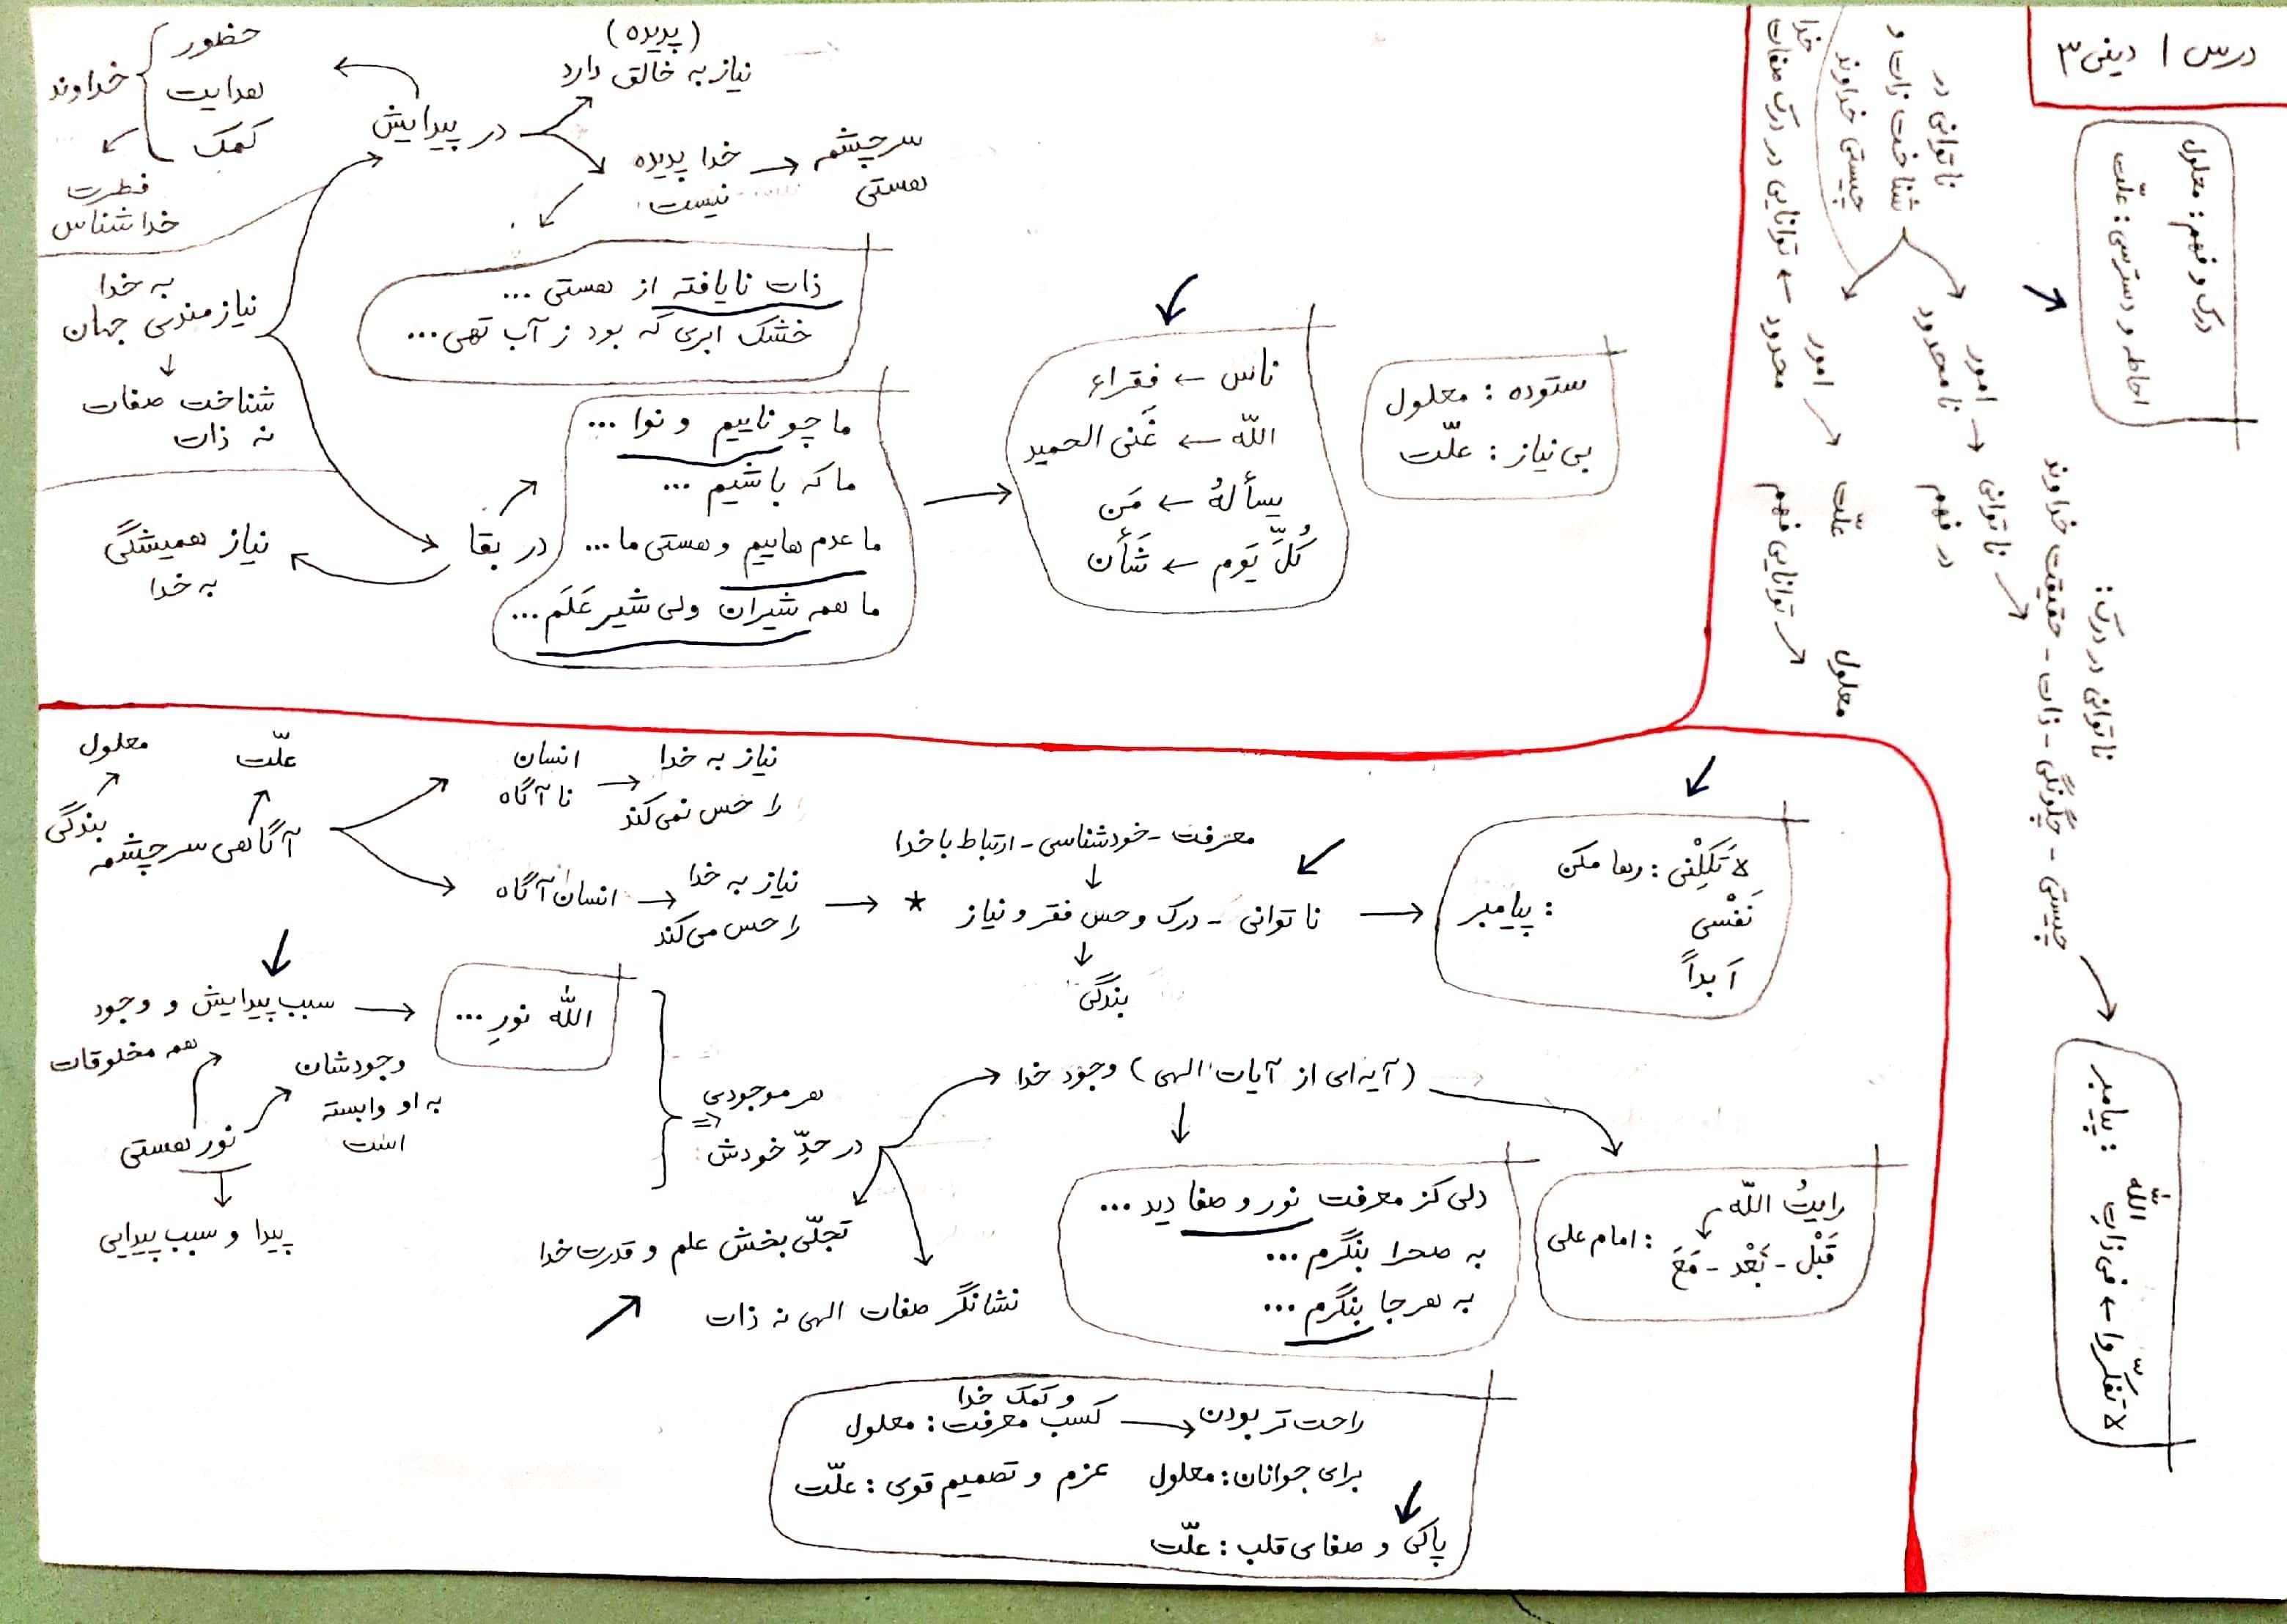 درس ۱ دینی ۳
درک و فهم: معلول
احاطه و دسترسی: علّت
ناتوانی در
شناخت ذات و
چیستی خداوند
توانایی در درک صفات خدا ← محدود
امور نامحدود → ناتوانی در فهم
امور محدود
علّت
معلول
توانایی فهم
ناتوانی در درک:
چیستی - چگونگی - ذات - حقیقت خداوند
پیامبر:
لا تفکّروا ← فی ذاتِ اللّه
حضور
هدایت
کمک
خداوند
فطرت
خداشناس
(پدیده)
نیاز به خالق دارد
در پیدایش
خدا پدیده
نیست
سرچشمه
هستی
ذات نایافته از هستی ...
خشک ابری که بود ز آب تهی ...
به خدا
نیازمندی جهان
شناخت صفات
نه ذات
نیاز همیشگی
به خدا
در بقا
ما چو ناییم و نوا ...
ما که باشیم ...
ما عدم هاییم و هستی ما ...
ما همه شیران ولی شیر عَلَم ...
ناس ← فقراء
اللّه ← غَنی الحمید
یسألهُ ← مَن
کُلَّ یَوم ← شَأن
ستوده: معلول
بی نیاز: علّت
معلول
علّت
بندگی
آگاهی سرچشمه
انسان
ناآگاه
نیاز به خدا
را حس نمی کند
انسان آگاه
نیاز به خدا
را حس می کند
*
معرفت - خودشناسی - ارتباط با خدا
ناتوانی - درک و حس فقر و نیاز
بندگی
پیامبر:
لا تَکِلْنی: رها مکن
نَفْسی
اَبداً
سبب پیدایش و وجود
همه مخلوقات
اللّه نورِ ...
وجودشان
به او وابسته
است
نور هستی
پیدا و سبب پیدایی
هر موجودی
در حدِّ خودش:
(آیه ای از آیات الهی) وجود خدا
تجلّی بخش علم و قدرت خدا
نشانگر صفات الهی نه ذات
دلی کز معرفت نور و صفا دید ...
به صحرا بنگرم ...
به هر جا بنگرم ...
امام علی:
رایتُ اللّه
قَبْل - بَعْد - مَعَ
و کمک خدا
راحت تر بودن → کسب معرفت: معلول
برای جوانان: معلول عزم و تصمیم قوی: علّت
پاکی و صفای قلب: علّت